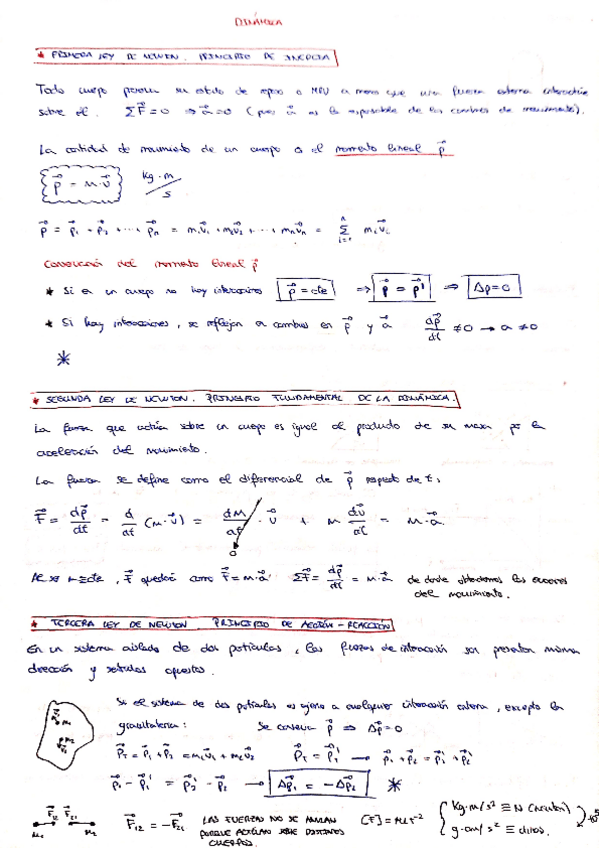 DINÁMICA
* PRIMERA LEY DE NEWTON. PRINCIPIO DE INERCIA
Todo cuerpo su estado de reposo o MRU a menos que una fuerza externa interactúe
sobre él. ΣF⃗=0 ⇒ a⃗=0 (pues a⃗ es la responsable de los cambios de movimiento).
La cantidad de movimiento de un cuerpo es el momento lineal p⃗
p⃗ = m·v⃗ kg·m/s
p⃗ = p⃗₁ + p⃗₂ + ··· p⃗ₙ = m₁v⃗₁ + m₂v⃗₂ + ··· mₙv⃗ₙ = Σ mᵢv⃗ᵢ
Conservación del momento lineal p⃗
* Si en un cuerpo no hay interacciones p⃗ = cte ⇒ p⃗ = p⃗' ⇒ Δp=0
* Si hay interacciones, se reflejan en cambios en p⃗ y a⃗ dp⃗/dt ≠0 → a ≠0
*
* SEGUNDA LEY DE NEWTON. PRINCIPIO FUNDAMENTAL DE LA DINÁMICA.
La fuerza que actúa sobre un cuerpo es igual al producto de su masa por la
aceleración del movimiento.
La fuerza se define como el diferencial de p⃗ respecto de t:
F⃗ = dp⃗/dt = d/dt (m·v⃗) = dm/dt · v⃗ + m dv⃗/dt = m·a⃗
0
, F⃗ quedará como F⃗=m·a⃗ ΣF⃗= dp⃗/dt = m·a⃗ de donde obtenemos las ecuaciones
del movimiento.
* TERCERA LEY DE NEWTON. PRINCIPIO DE ACCIÓN-REACCIÓN
En un sistema aislado de dos partículas, las fuerzas de interacción son misma
dirección y sentidos opuestos.
Si el sistema de dos partículas es ajeno a cualquier interacción externa, excepto la
gravitatoria: Se conserva p⃗ ⇒ Δp⃗=0
p⃗T = p⃗₁ + p⃗₂ = m₁v⃗₁ + m₂v⃗₂ p⃗T = p⃗T' → p⃗₁ + p⃗₂ = p⃗₁' + p⃗₂'
p⃗₁ - p⃗₁' = p⃗₂' - p⃗₂ → Δp⃗₁ = -Δp⃗₂ *
F⃗₁₂ F⃗₂₁ m₁ m₂ F⃗₁₂ = -F⃗₂₁ LAS FUERZAS NO SE ANULAN [F]=MLT⁻² kg·m/s² ≡ N (newton)
PORQUE ACTÚAN SOBRE DISTINTOS g·cm/s² ≡ dinas.
CUERPOS